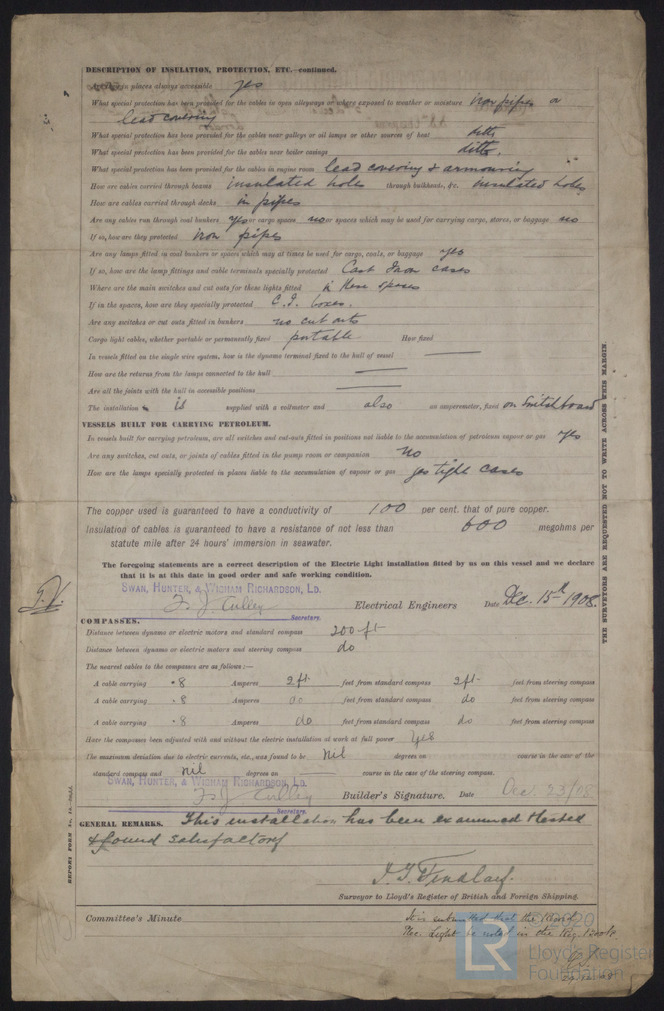 DESCRIPTION OF INSULATION, PROTECTION, ETC.—continued.
in places always accessible yes
What special protection has been provided for the cables in open alleyways or where exposed to weather or moisture iron pipes or
lead covering
What special protection has been provided for the cables near galleys or oil lamps or other sources of heat ditto
What special protection has been provided for the cables near boiler casings ditto.
What special protection has been provided for the cables in engine room lead covering & armouring
How are cables carried through beams insulated holes through bulkheads, &c. insulated holes
How are cables carried through decks in pipes
Are any cables run through coal bunkers yes or cargo spaces no or spaces which may be used for carrying cargo, stores, or baggage no
If so, how are they protected iron pipes
Are any lamps fitted in coal bunkers or spaces which may at times be used for cargo, coals, or baggage yes
If so, how are the lamp fittings and cable terminals specially protected Cast Iron cases
Where are the main switches and cut outs for these lights fitted in these spaces
If in the spaces, how are they specially protected C.I. boxes.
Are any switches or cut outs fitted in bunkers no cut outs
Cargo light cables, whether portable or permanently fixed portable How fixed
In vessels fitted on the single wire system, how is the dynamo terminal fixed to the hull of vessel
How are the returns from the lamps connected to the hull
Are all the joints with the hull in accessible positions
The installation is supplied with a voltmeter and also an amperemeter, fixed on Switchboard
VESSELS BUILT FOR CARRYING PETROLEUM.
In vessels built for carrying petroleum, are all switches and cut-outs fitted in positions not liable to the accumulation of petroleum vapour or gas yes
Are any switches, cut outs, or joints of cables fitted in the pump room or companion no
How are the lamps specially protected in places liable to the accumulation of vapour or gas gas tight cases
The copper used is guaranteed to have a conductivity of 100 per cent. that of pure copper.
Insulation of cables is guaranteed to have a resistance of not less than 600 megohms per
statute mile after 24 hours' immersion in seawater.
The foregoing statements are a correct description of the Electric Light installation fitted by us on this vessel and we declare
that it is at this date in good order and safe working condition.
SWAN, HUNTER, & WIGHAM RICHARDSON, LD.
Electrical Engineers Date Dec. 15th 1908.
Secretary.
COMPASSES.
Distance between dynamo or electric motors and standard compass 200 ft
Distance between dynamo or electric motors and steering compass do
The nearest cables to the compasses are as follows:—
A cable carrying .8 Amperes 2 ft feet from standard compass 2 ft feet from steering compass
A cable carrying .8 Amperes do feet from standard compass do feet from steering compass
A cable carrying .8 Amperes do feet from standard compass do feet from steering compass
Have the compasses been adjusted with and without the electric installation at work at full power Yes
The maximum deviation due to electric currents, etc., was found to be nil degrees on course in the case of the
standard compass and nil degrees on course in the case of the steering compass.
SWAN, HUNTER, & WIGHAM RICHARDSON, LD.
Builder's Signature. Date Dec 23/08
Secretary.
GENERAL REMARKS. This installation has been examined & tested
& found satisfactory
Surveyor to Lloyd's Register of British and Foreign Shipping.
Committee's Minute
It is submitted that the Record
Elec. Light be noted in the Reg. Book.
THE SURVEYORS ARE REQUESTED NOT TO WRITE ACROSS THIS MARGIN.
LR
2020
Lloyd's Register
Foundation